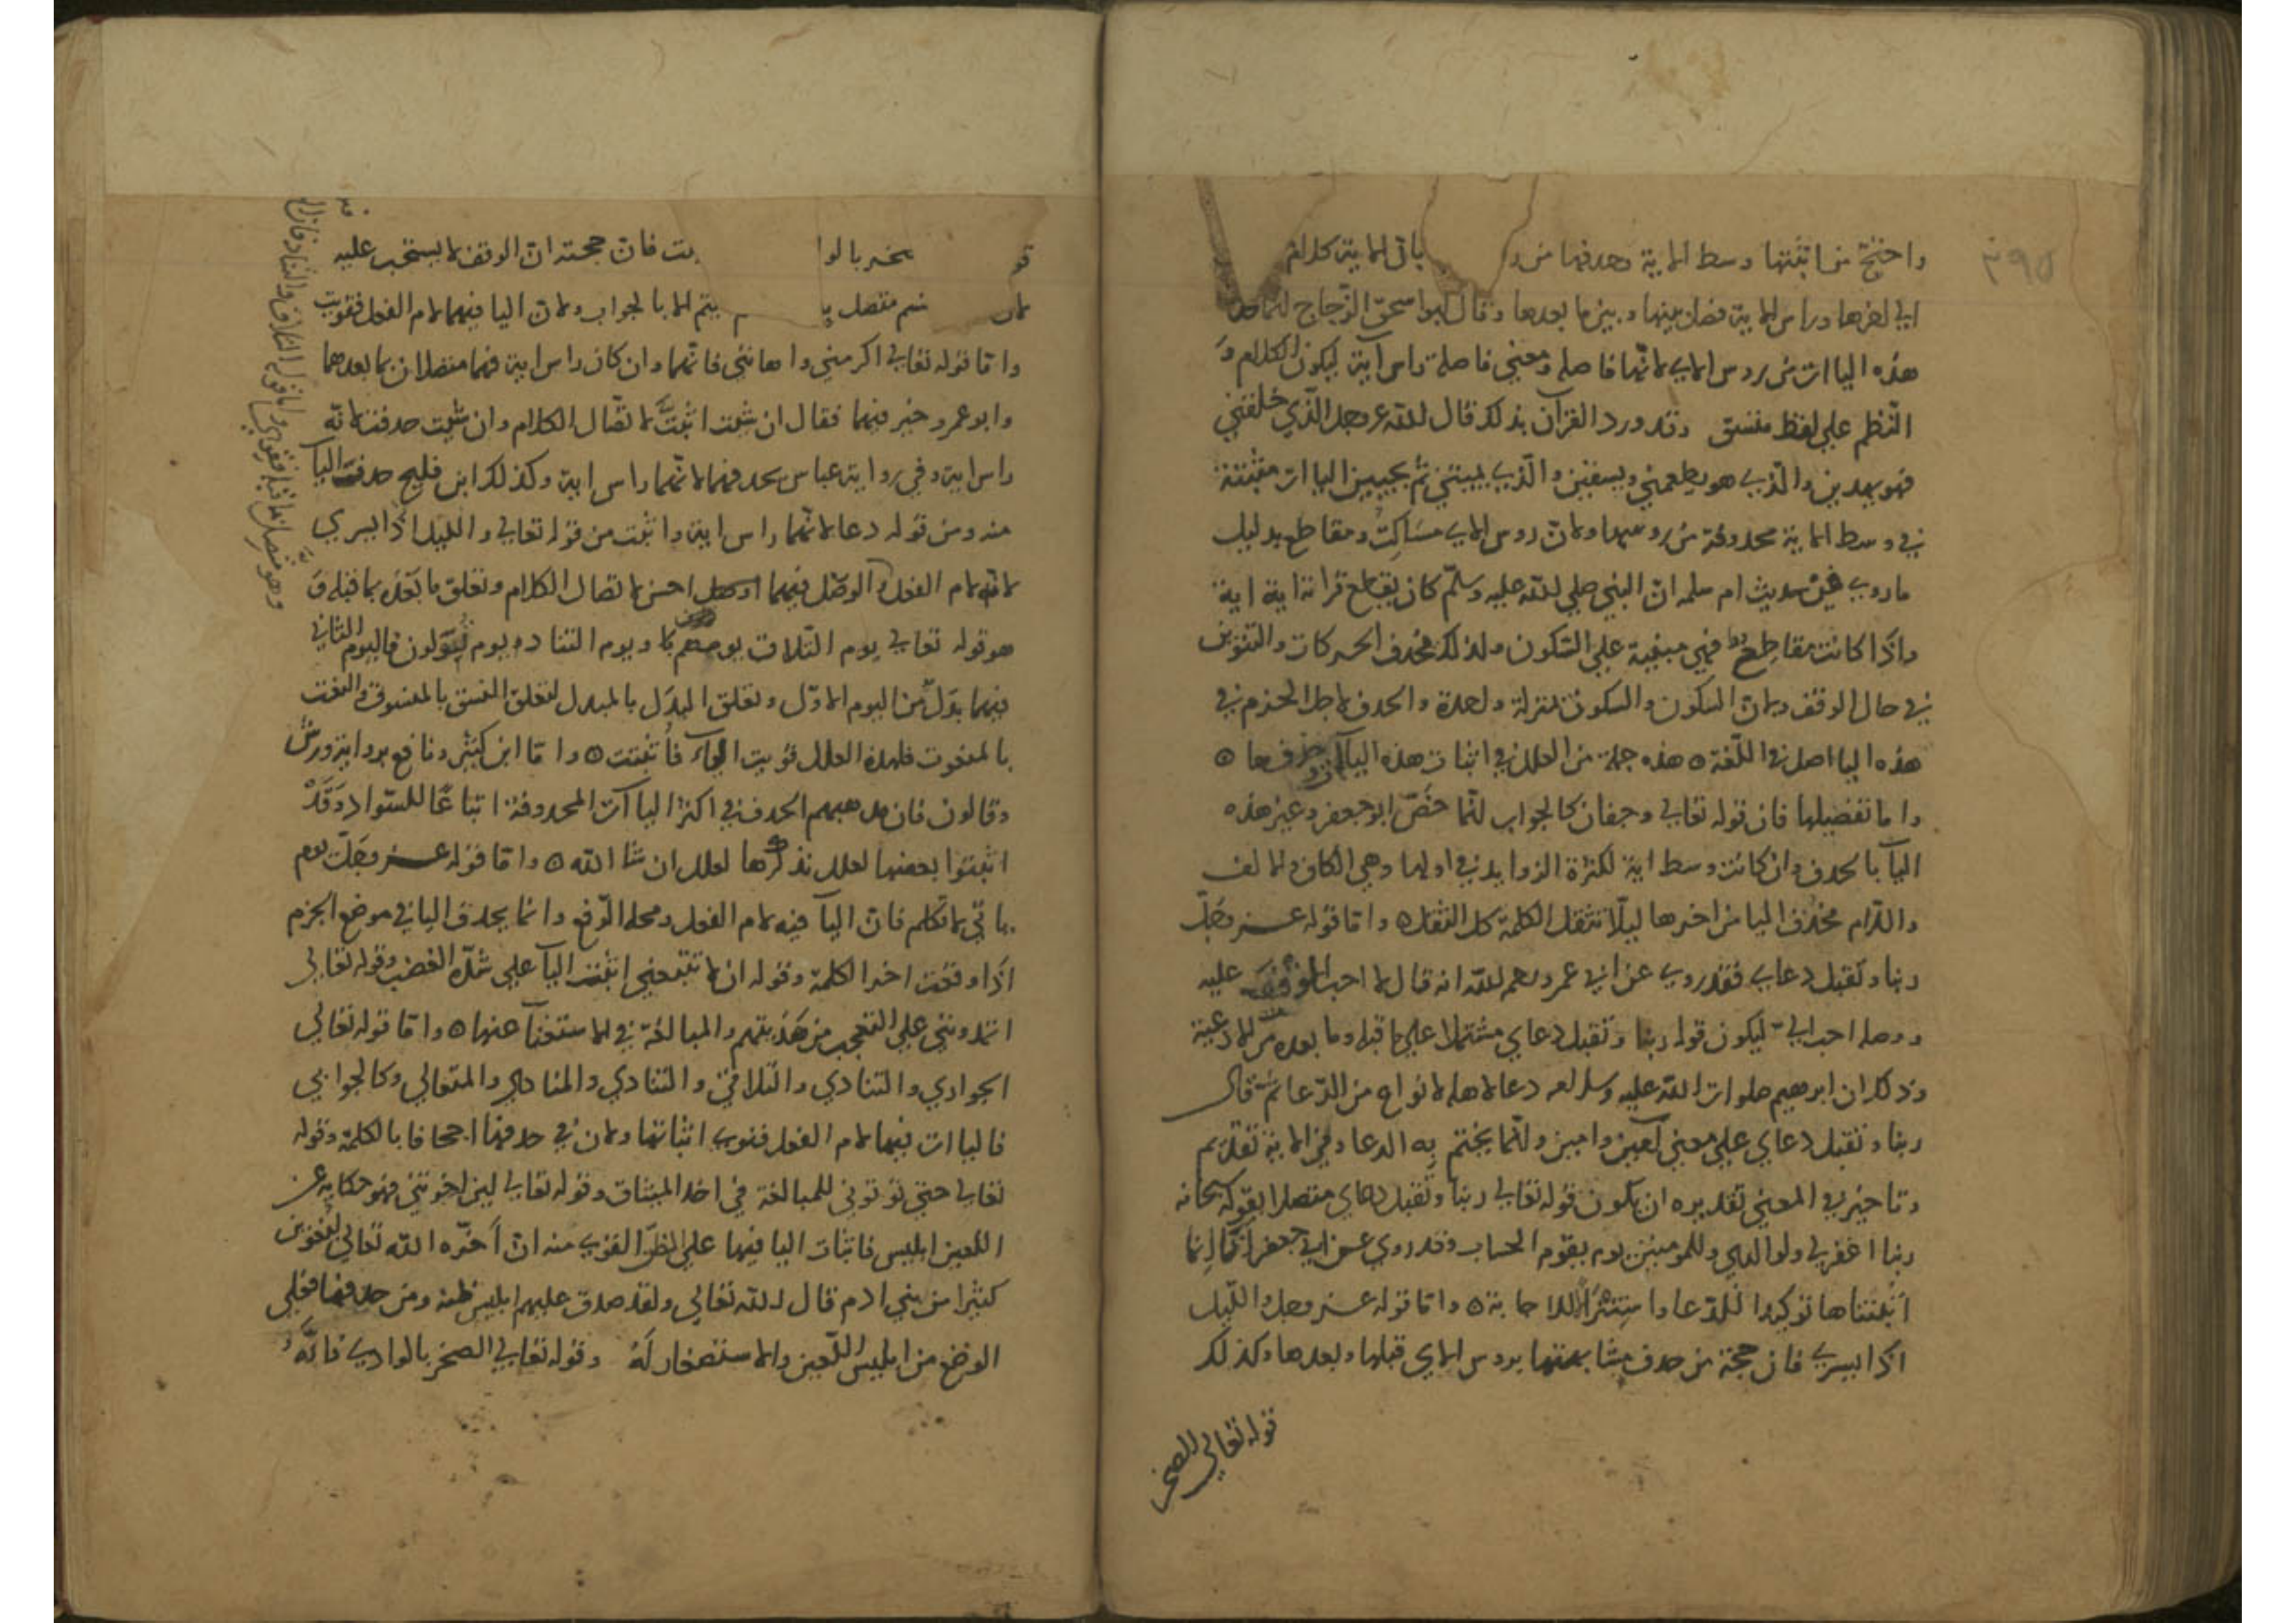 ٣٩٥
واحتج من اثبتها وسط الاية وحذفها من ياتى الاية كلام
الي اخرها وراس الاية فصل بينها وبين ما بعدها وقال ابو اسحق الزجاج انما حذف
هذه الياات من روس الاي لانها فاصله ومعني فاصلة راس آية ليكون الكلام و
النظم علي لفظ متسق وقد ورد القرآن بذلك قال الله عز وجل الذي خلقني
فهو يهدين والذي هو يطعمني ويسقين والذي يميتني ثم يحيين الياات مثبتة
في وسط الاية محذوفة من روسها ولان روس الاي مساكت ومقاطع بدليل
ما روي في حديث ام سلمه ان النبي صلي الله عليه وسلم كان يقطع قراته اية اية
واذا كانت مقاطع فهي مبنية علي السكون ولذلك تحذف الحركات والتنوين
في حال الوقف ولان السكون والسكون بمنزلة واحدة والحذف لاجل الجزم في
هذه اليا اصل في اللغة ه هذه جملة من العلل في اثبات هذه اليا وحذفها ه
واما تفصيلها فان قوله تعالي وجفان كالجواب انما خص ابو جعفر وغيره هذه
اليآ بالحذف وان كانت وسط اية لكثرة الزوايد في اولها وهي الكاف والالف
واللام فحذف اليا من اخرها ليلا تثقل الكلمة كل الثقل ه واما قوله عز وجل
ربنا وتقبل دعاي فقد روي عن ابي عمرو رحمه الله انه قال لا احب الوقف عليه
ووصله احب الي ليكون قوله ربنا وتقبل دعاي مشتملا علي ما قبله وما بعده من الادعية
وذلك ان ابرهيم صلوات الله عليه وسلامه دعا لاهله لانواع من الدعا ثم قال
ربنا وتقبل دعاي علي معني آمين وامين وانما يختم به الدعا وفي الاية تقديم
وتاخير في المعني تقديره ان يكون قوله تعالي ربنا وتقبل دعاي متصلا بقوله سبحانه
ربنا اغفر لي ولوالدي وللمومنين يوم يقوم الحساب وقد روي عن ابي جعفر انه قال انما
اثبتناها توكيدا للدعا واستنزالا للاجابة ه واما قوله عز وجل والليل
اذا يسري فان حجة من حذف مشابهتها بروس الاي قبلها وبعدها وكذلك
قوله تعالي الصخر
بالوا فان حجته ان الوقف لا يستحب عليه
لان متصل يتم الا بالجواب ولان اليا فيهما لام الفعل فقويت
واما قوله تعالي اكرمني واهانني فانهما وان كان راس اية فهما متصلان بما بعدهما
وابو عمرو خير فيهما فقال ان شيت اثبت لاتصال الكلام وان شيت حذفت لانه
راس اية وفي رواية عباس بحذفهما لانهما راس اية وكذلك ابن فليح حذف اليا
منه ومن قوله دعا لانهما راس اية واثبت من قوله تعالي والليل اذا يسري
لانه لام الفعل والوصل فيهما احسن لاتصال الكلام وتعلق ما بعده بما قبله و
هو قوله تعالي يوم التلاق يوم هم ويوم التناد ه يوم تولون فاليوم الثاني
فيهما بدل من اليوم الاول وتعلق البدل بالمبدل لتعلق النسق بالمنسوق والنعت
بالمنعوت فلهذه العلل قويت الياء فأثبتت ه واما ابن كثير ونافع برواية ورش
وقالون فان مذهبهم الحذف في اكثر الياآت المحذوفة اتباعا للسواد وقد
اثبتوا بعضها لعلل نذكرها لعلل ان شا الله ه واما قوله عز وجل يوم
ياتي لا تكلم فان اليآ فيه لام الفعل ومحله الرفع وانما يحذف اليا في موضع الجزم
اذا وقعت اخر الكلمة وقوله ان لا تتبعني اثبت اليآ علي شدة الغضب وقوله تعالي
اتمدونني علي التعجب من هديتهم والمبالغة في الاستغنآ عنها ه واما قوله تعالي
الجواري والتنادي والتلاقي والتنادي والمنادي والمتعالي وكالجوابي
فالياات فيها لام الفعل فقوي اثباتها ولان في حذفها اجحافا بالكلمة وقوله
تعالي حتي توتوني للمبالغة في اخذ الميثاق وقوله تعالي لين اخرتني فهو حكاية عن
اللعين ابليس فاثبات اليا فيها علي الظن القوي منه ان أخره الله تعالي ليغوين
كثيرا من بني ادم قال الله تعالي ولقد صدق عليهم ابليس ظنه ومن حذفها فعلي
الوضع من ابليس اللعين والاستصغار له وقوله تعالي الصخر بالوادي فانه